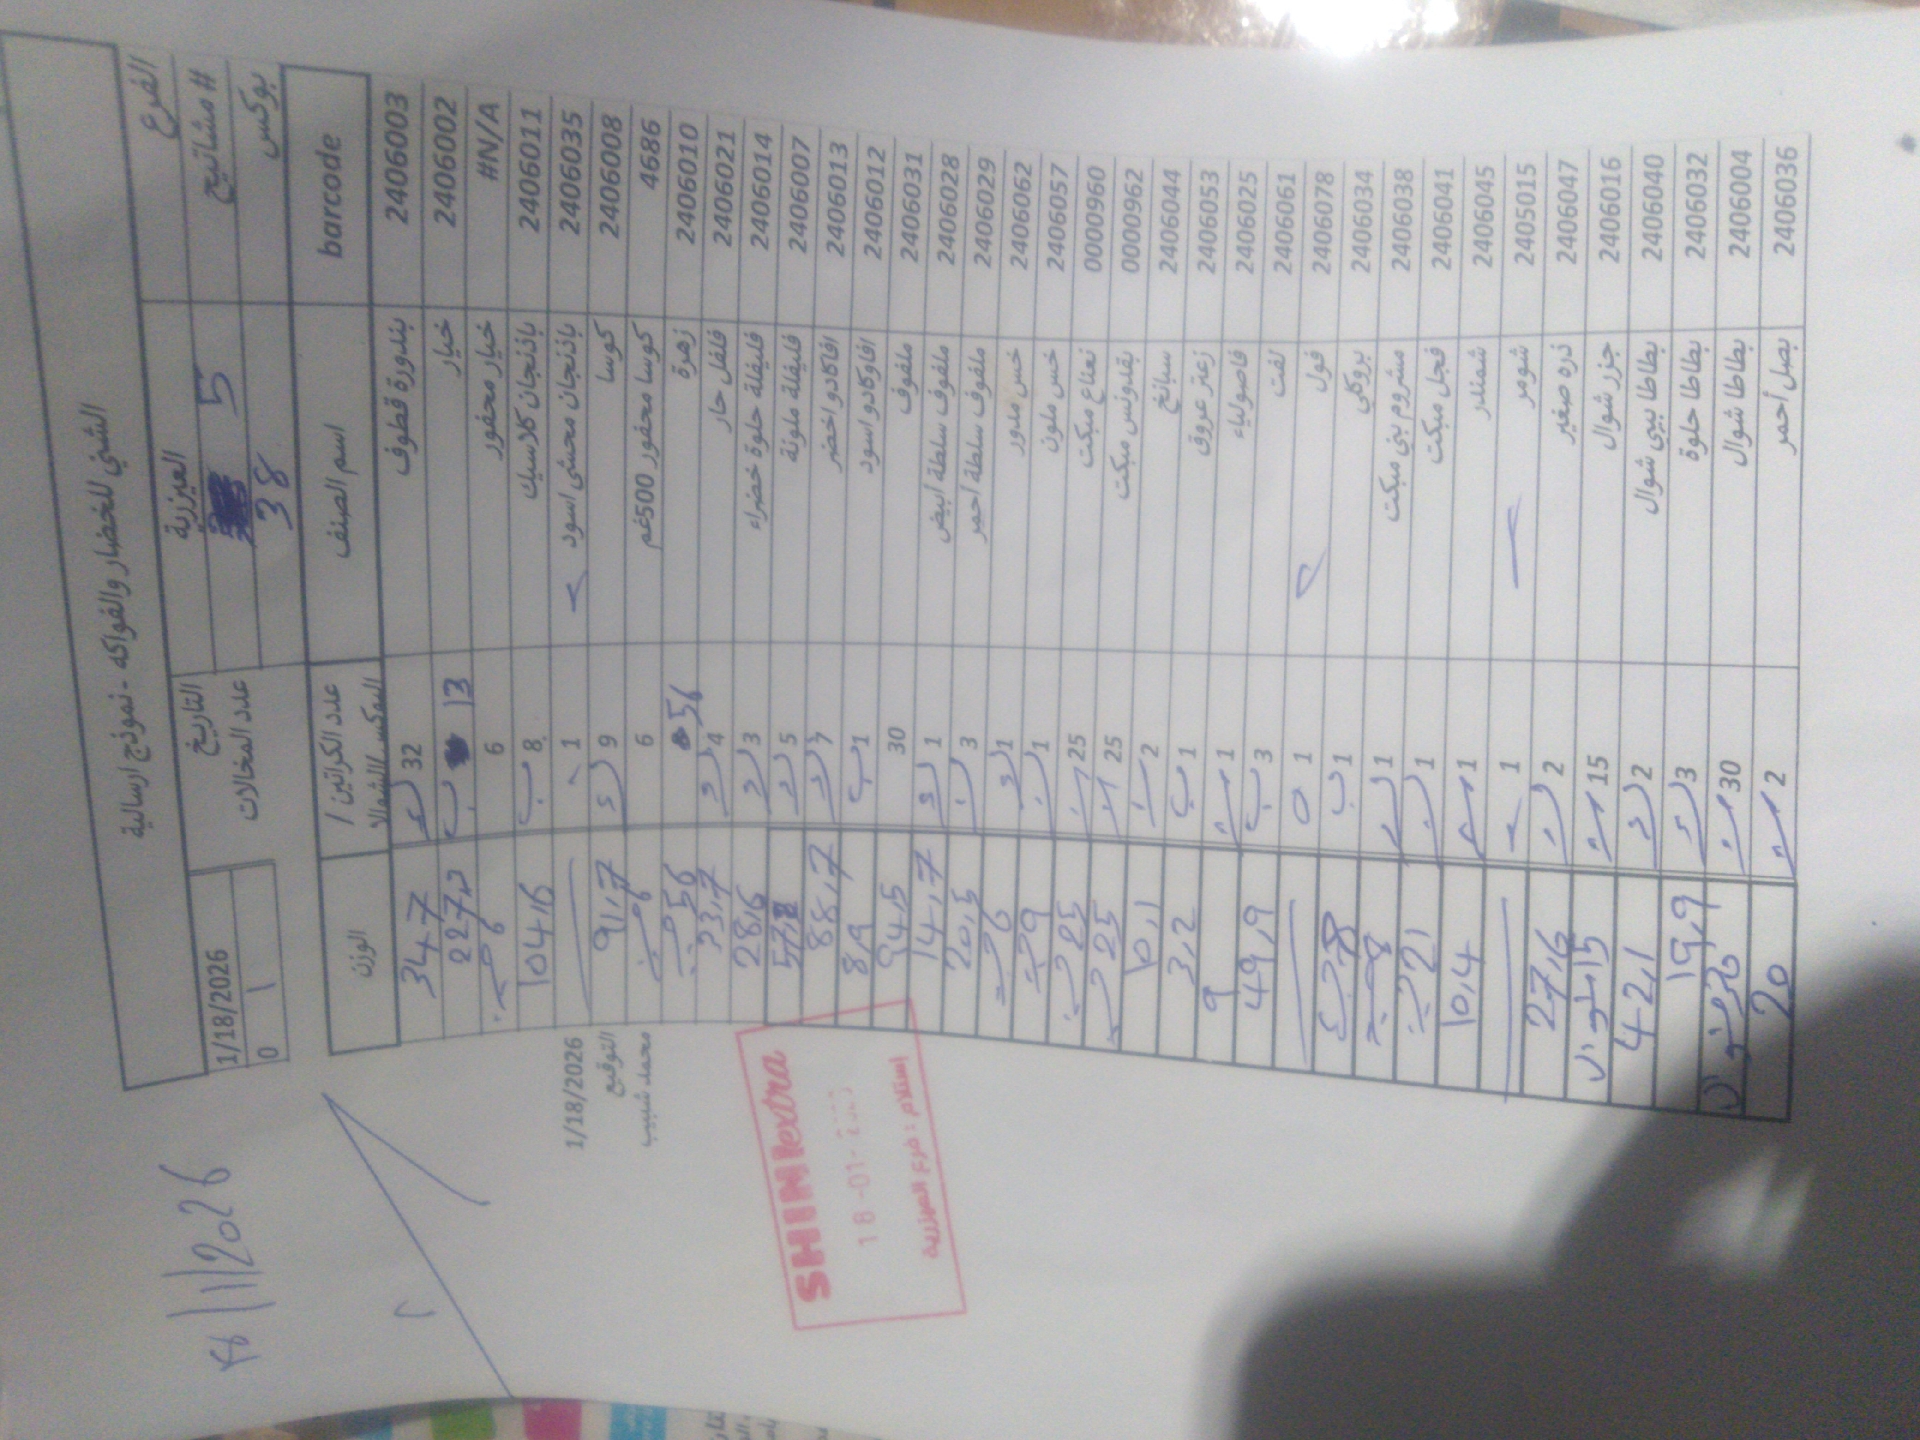 الشني للخضار والفواكه - نموذج ارسالية
الفرع العيزرية التاريخ 1/18/2026
# مشاتيح 5 عدد المخالات 0 1
بوكس 38
barcode اسم الصنف عدد الكراتين / البوكس/الشوالات الوزن
2406003 بندورة قطوف 32 347
2406002 خيار 13 227,2
#N/A خيار محفور 6
2406011 باذنجان كلاسيك 8 ب 104,6
2406035 باذنجان محشي اسود 1
2406008 كوسا 9 91,7
4686 كوسا محفور 500غم 6
2406010 زهرة 56 56
2406021 فلفل حار 4 33,7
2406014 فليفلة حلوة خضراء 3 28,6
2406007 فليفلة ملونة 5
2406013 افاكادو اخضر 7 88,7
2406012 افاوكادو اسود 1 ب 8,9
2406031 ملفوف 30 94,5
2406028 ملفوف سلطة ابيض 1 14,7
2406029 ملفوف سلطة احمر 3 20,5
2406062 خس مدور 1
2406057 خس ملون 1 9
0000960 نعناع مبكت 25 25
0000962 بقدونس مبكت 25 25
2406044 سبانخ 2 10,1
2406053 زعتر عروق 1 ب 3,2
2406025 فاصولياء 1 9
2406061 لفت 3 ب 49,9
2406078 فول 1
2406034 بروكلي 1 ب
2406038 مشروم بني مبكت 1
2406041 فجل مبكت 1 21
2406045 شمندر 1 10,4
2405015 شومر 1
2406047 ذره صغير 2 27,6
2406016 جزر شوال 15 15 شوال
2406040 بطاطا بيبي شوال 2 42,1
2406032 بطاطا حلوة 3 19,9
2406004 بطاطا شوال 30
2406036 بصل احمر 2 20
1/18/2026
التوقيع
محمد شبيب
SHINI extra
18-01-
استلام : فرع العيزرية